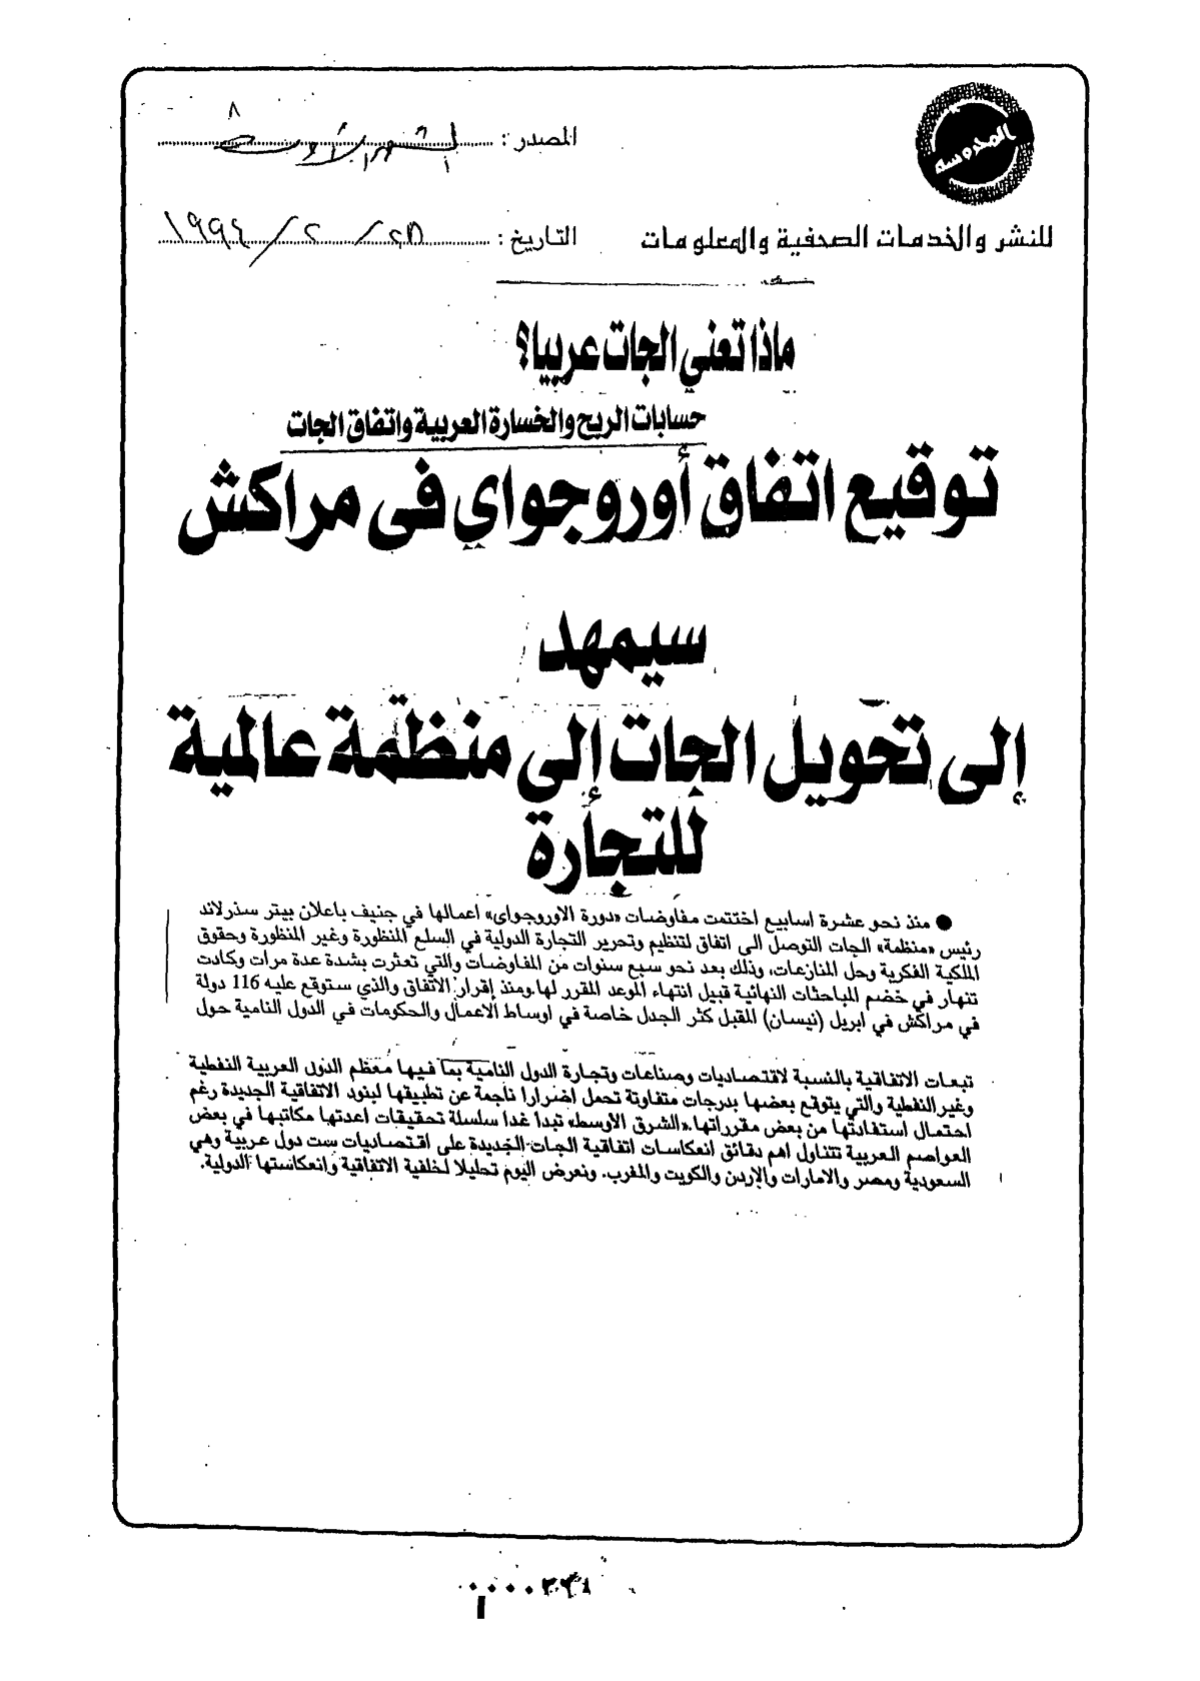 المدروسة
المصدر: الشرق الأوسط
التاريخ: ٢٨ / ٢ / ١٩٩٤
للنشر والخدمات الصحفية والمعلومات
ماذا تعني الجات عربيا؟
حسابات الربح والخسارة العربية واتفاق الجات
توقيع اتفاق أوروجواي فى مراكش
سيمهد
إلى تحويل الجات إلى منظمة عالمية
للتجارة
● منذ نحو عشرة اسابيع اختتمت مفاوضات «دورة الاوروجواي» اعمالها في جنيف باعلان بيتر سذرلاند
رئيس «منظمة» الجات التوصل الى اتفاق لتنظيم وتحرير التجارة الدولية في السلع المنظورة وغير المنظورة وحقوق
الملكية الفكرية وحل المنازعات، وذلك بعد نحو سبع سنوات من المفاوضات والتي تعثرت بشدة عدة مرات وكادت
تنهار في خضم المباحثات النهائية قبيل انتهاء الموعد المقرر لها.ومنذ إقرار الاتفاق والذي ستوقع عليه 116 دولة
في مراكش في ابريل (نيسان) المقبل كثر الجدل خاصة في اوساط الاعمال والحكومات في الدول النامية حول
تبعات الاتفاقية بالنسبة لاقتصاديات وصناعات وتجارة الدول النامية بما فيها معظم الدول العربية النفطية
وغير النفطية والتي يتوقع بعضها بدرجات متفاوتة تحمل اضرارا ناجمة عن تطبيقها لبنود الاتفاقية الجديدة رغم
احتمال استفادتها من بعض مقرراتها.«الشرق الأوسط» تبدا غدا سلسلة تحقيقات اعدتها مكاتبها في بعض
العواصم العربية تتناول اهم دقائق انعكاسات اتفاقية الجات الجديدة على اقتصاديات ست دول عربية وهي
السعودية ومصر والامارات والاردن والكويت والمغرب. ونعرض اليوم تحليلا لخلفية الاتفاقية وانعكاستها الدولية.